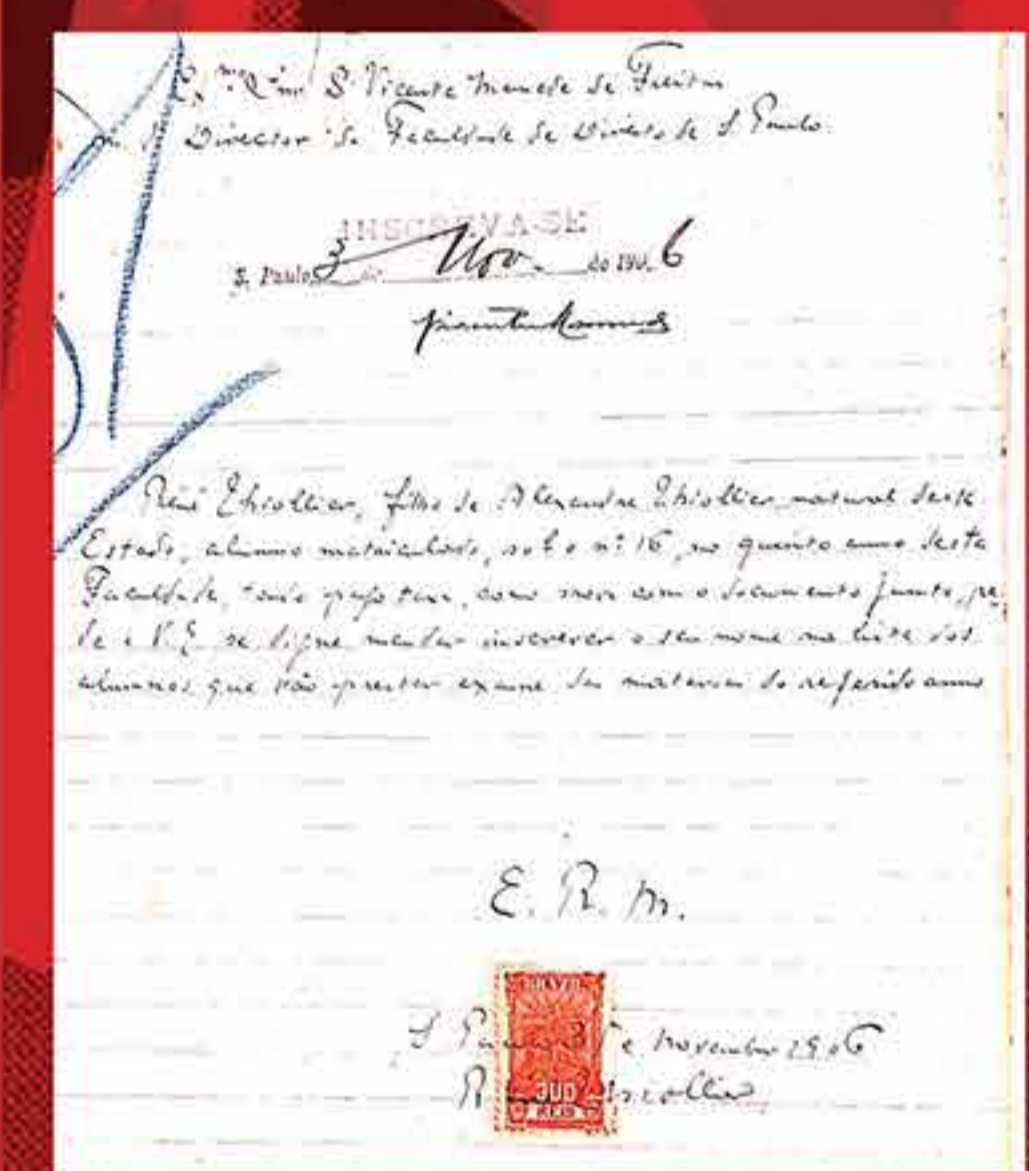 Ex.mo Snr. Dr. Vicente Mamede de Freitas
Director da Faculdade de Direito de S. Paulo.
INSCREVA-SE
S. Paulo, 3 de Nov. de 190 6
Vicente Mamede
René Thiollier, filho de Alexandre Thiollier, natural deste
Estado, alumno matriculado, sob o nº 16, no quinto anno desta
Faculdade, tendo pago taxa, como prova com o documento junto, pe-
de a V. Ex. se digne mandar inscrever o seu nome na lista dos
alumnos que vão prestar exame das materias do referido anno
E. R. M.
S. Paulo 3 de novembro 1906
René Thiollier
BRAZIL
300
REIS